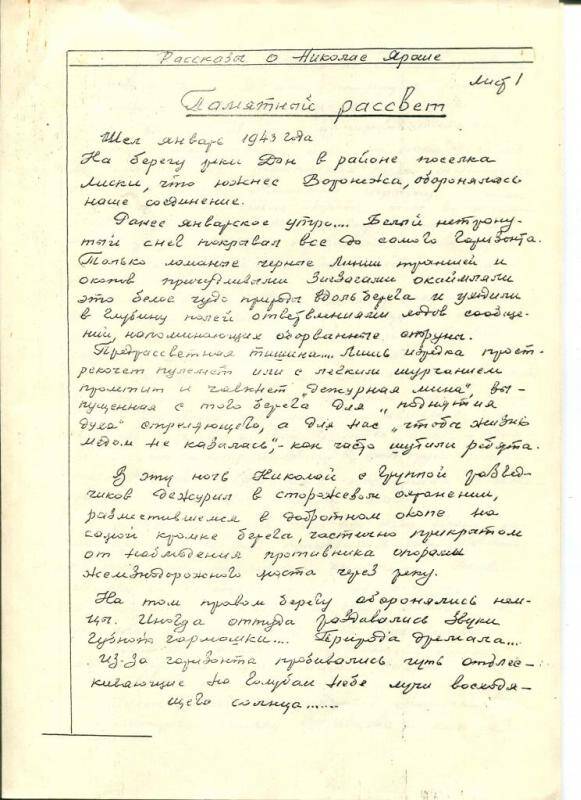 Рассказы о Николае Яроше
Лист 1
Памятный рассвет
Шел январь 1943 года
На берегу реки Дон в районе поселка
Лиски, что южнее Воронежа, оборонялось
наше соединение.
Ранее январское утро.... Белый нетрону-
тый снег покрывал все до самого горизонта.
Только ломаные черные линии траншей и
окопов причудливыми зигзагами окаймляли
это белое чудо природы вдоль берега и уходили
в глубину полей ответвлениями ходов сообще-
ний, напоминающих оборванные струны.
Предрассветная тишина.... Лишь изредка прост-
рекочет пулемет или с легким шурчанием
пролетит и чавкнет "дежурная мина", вы-
пущенная с того берега для "поднятия
духа" стреляющего, а для нас "чтобы жизнь
медом не казалась", - как часто шутили ребята.
В эту ночь Николай с группой развед-
чиков дежурил в сторожевом охранении,
разместившемся в добротном окопе на
самой кромке берега, частично прикрытом
от наблюдения противника опорами
железнодорожного моста через реку.
На том правом берегу оборонялись нем-
цы. Иногда оттуда раздавались звуки
губной гармошки.... Природа дремала....
Из-за горизонта пробивались чуть отблес-
кивающие на голубом небе лучи восходя-
щего солнца......